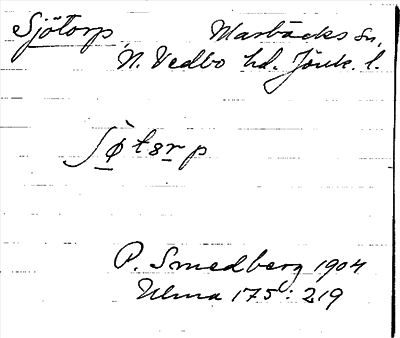 Sjötorp, Marbäcks sn,
N. Vedbo hd. Jönk. l.
P. Smedberg 1904
Ulma 175: 219